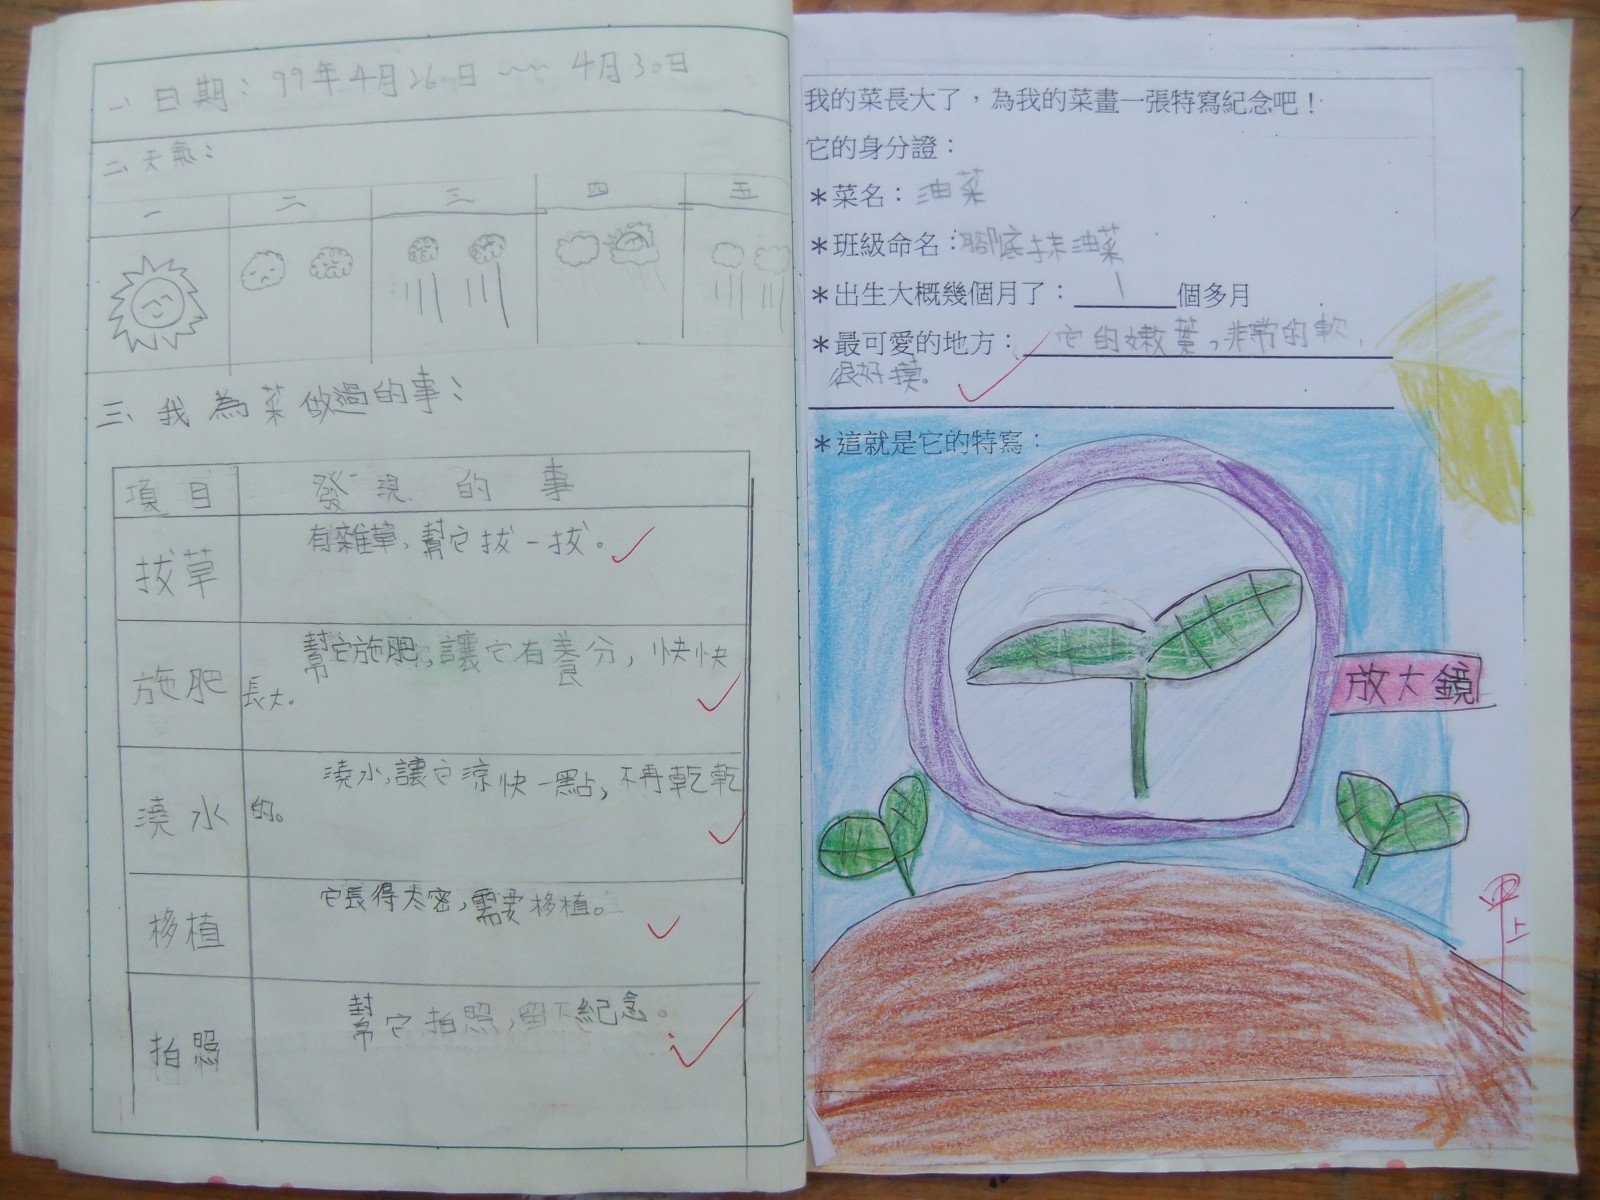 一、日期：99年4月26日~~4月30日
二、天氣：
一 二 三 四 五
三、我為菜做過的事：
項目 發現的事
拔草 有雜草，幫它拔一拔。
施肥 幫它施肥，讓它有養分，快快
長大。
澆水 澆水，讓它涼快一點，不再乾乾
的。
移植 它長得太密，需要移植。
拍照 幫它拍照，留下紀念。
我的菜長大了，為我的菜畫一張特寫紀念吧！
它的身分證：
＊菜名：油菜
＊班級命名：腳底抹油菜
＊出生大概幾個月了：1個多月
＊最可愛的地方：它的嫩葉，非常的軟，
很好摸。
＊這就是它的特寫：
放大鏡
甲上